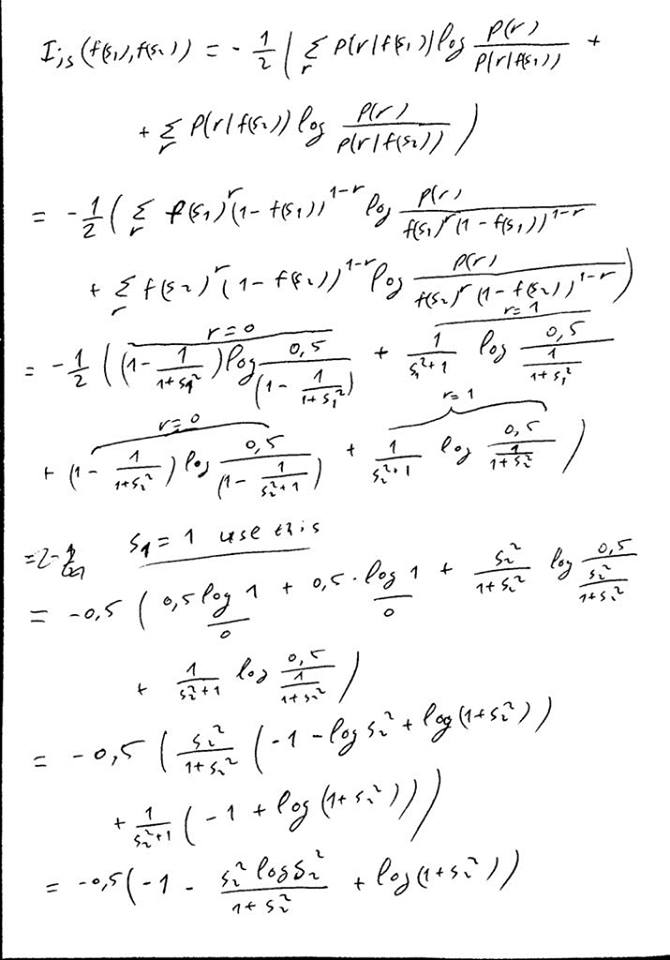 I_{is}(f(s_1), f(s_2)) = - \frac{1}{2} ( \sum_r P(r|f(s_1)) log \frac{P(r)}{P(r|f(s_1))} +
+ \sum_r P(r|f(s_2)) log \frac{P(r)}{P(r|f(s_2))} )
= - \frac{1}{2} ( \sum_r f(s_1)^r (1 - f(s_1))^{1-r} log \frac{P(r)}{f(s_1)^r (1 - f(s_1))^{1-r}}
+ \sum_r f(s_2)^r (1 - f(s_2))^{1-r} log \frac{P(r)}{f(s_2)^r (1 - f(s_2))^{1-r}} )
r=0 r=1
= - \frac{1}{2} ( (1 - \frac{1}{1+s_1^2}) log \frac{0,5}{(1 - \frac{1}{1+s_1^2})} + \frac{1}{s_1^2+1} log \frac{0,5}{\frac{1}{1+s_1^2}}
r=0 r=1
+ (1 - \frac{1}{1+s_2^2}) log \frac{0,5}{(1 - \frac{1}{s_2^2+1})} + \frac{1}{s_2^2+1} log \frac{0,5}{\frac{1}{1+s_2^2}} )
s_1 = 1 use this
= -0,5 ( \frac{0,5 log 1}{0} + \frac{0,5 \cdot log 1}{0} + \frac{s_2^2}{1+s_2^2} log \frac{0,5}{\frac{s_2^2}{1+s_2^2}}
+ \frac{1}{s_2^2+1} log \frac{0,5}{\frac{1}{1+s_2^2}} )
= -0,5 ( \frac{s_2^2}{1+s_2^2} ( -1 - log s_2^2 + log (1+s_2^2) )
+ \frac{1}{s_2^2+1} ( -1 + log (1+s_2^2) ) )
= -0,5 ( -1 - \frac{s_2^2 log s_2^2}{1+s_2^2} + log (1+s_2^2) )